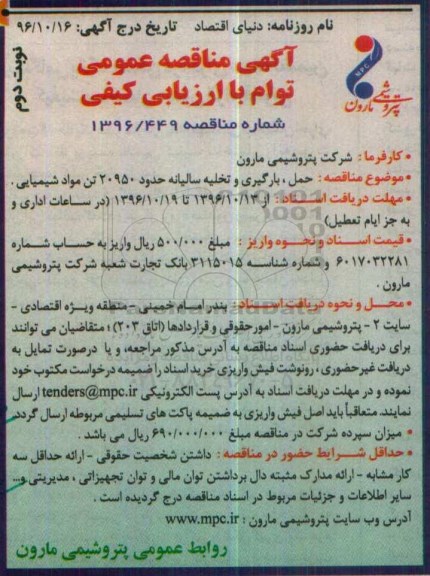 نام روزنامه: دنیای اقتصاد    تاریخ درج آگهی: ۹۶/۱۰/۱۶
نوبت دوم
MPC
پتروشیمی مارون
آگهی مناقصه عمومی
توام با ارزیابی کیفی
شماره مناقصه ۱۳۹۶/۴۴۹
• کارفرما : شرکت پتروشیمی مارون
• موضوع مناقصه : حمل ، بارگیری و تخلیه سالیانه حدود ۲۰۹۵۰ تن مواد شیمیایی .
• مهلت دریافت اسناد : از ۱۳۹۶/۱۰/۱۳ تا ۱۳۹۶/۱۰/۱۹ (در ساعات اداری و
به جز ایام تعطیل)
• قیمت اسناد و نحوه واریز : مبلغ ۵۰۰/۰۰۰ ریال واریز به حساب شماره
۶۰۱۷۰۳۲۲۸۱ و شماره شناسه ۳۱۱۵۰۱۵ بانک تجارت شعبه شرکت پتروشیمی
مارون .
• محل و نحوه دریافت اسناد: بندر امام خمینی - منطقه ویژه اقتصادی -
سایت ۲ - پتروشیمی مارون - امور حقوقی و قراردادها (اتاق ۲۰۳) ؛ متقاضیان می توانند
برای دریافت حضوری اسناد مناقصه به آدرس مذکور مراجعه، و یا درصورت تمایل به
دریافت غیرحضوری ، رونوشت فیش واریزی خرید اسناد را ضمیمه درخواست مکتوب خود
نموده و در مهلت دریافت اسناد به آدرس پست الکترونیکی tenders@mpc.ir ارسال
نمایند. متعاقباً باید اصل فیش واریزی به ضمیمه پاکت های تسلیمی مربوطه ارسال گردد.
• میزان سپرده شرکت در مناقصه مبلغ ۶۹۰/۰۰۰/۰۰۰ ریال می باشد .
• حداقل شرایط حضور در مناقصه : داشتن شخصیت حقوقی - ارائه حداقل سه
کار مشابه - ارائه مدارک مثبته دال برداشتن توان مالی و توان تجهیزاتی ، مدیریتی و...
سایر اطلاعات و جزئیات مربوط در اسناد مناقصه درج گردیده است .
آدرس وب سایت پتروشیمی مارون : www.mpc.ir
روابط عمومی پتروشیمی مارون